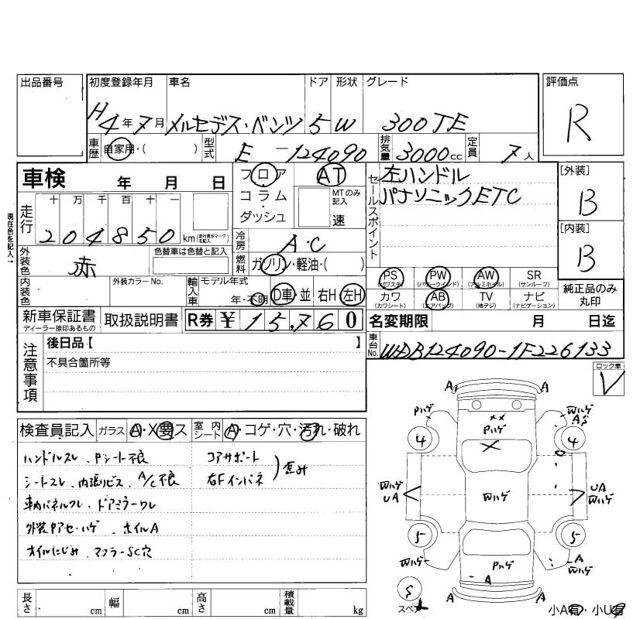 出品番号 初度登録年月 車名 ドア 形状 グレード 評価点
H4年7月 メルセデス・ベンツ 5 W 300TE R
車歴 自家用・( ) 型式 E-124090 排気量 3000cc 定員 7人
車検 年 月 日 フロア AT セールスポイント 左ハンドル [外装]
コラム MTのみ記入 パナソニックETC B
ダッシュ 速
現在色を記入→
走行 十 万 千 百 十 [内装]
204850 km 冷房 A・C B
外装色 赤 色替車は色替と記入 燃料 ガソリン・軽油・( )
PS PW AW SR 純正品のみ丸印
(パワステ) (パワーウインド) (アルミホイル) (サンルーフ)
内装色 外装カラーNo. 輸入車 モデル年式 カワ AB TV ナビ
(カワシート) (エアバック) (地デジ) (ナビゲーション)
年・不明 D車 並 右H 左H
新車保証書 取扱説明書 R券 ¥15,760 名変期限 月 日迄
ディーラー捺印あるもの
注意事項 後日品【 】 車台No. WDB124090-1F226133
不具合箇所等 ロック車
V
検査員記入 ガラス A・X・ス 室内シート A・コゲ・穴・汚れ・破れ
ハンドルスレ、Pシート不良 コアサポート
シートスレ、内張リビス、A/C不良 右Fインパネ 歪み
車内パネルワレ、ドアミラーワレ
外装PアセハゲホイルA
オイルにじみ、マフラーSC穴
A A
Pハゲ ×× Wハゲ
Pハゲ A
4 × 4
Wハゲ Wハゲ UA
UA Wハゲ
5 5
Wハゲ Pハゲ Wハゲ
A
S A A
スペア
長さ cm 幅 cm 高さ cm 積載量 kg 小A・小U